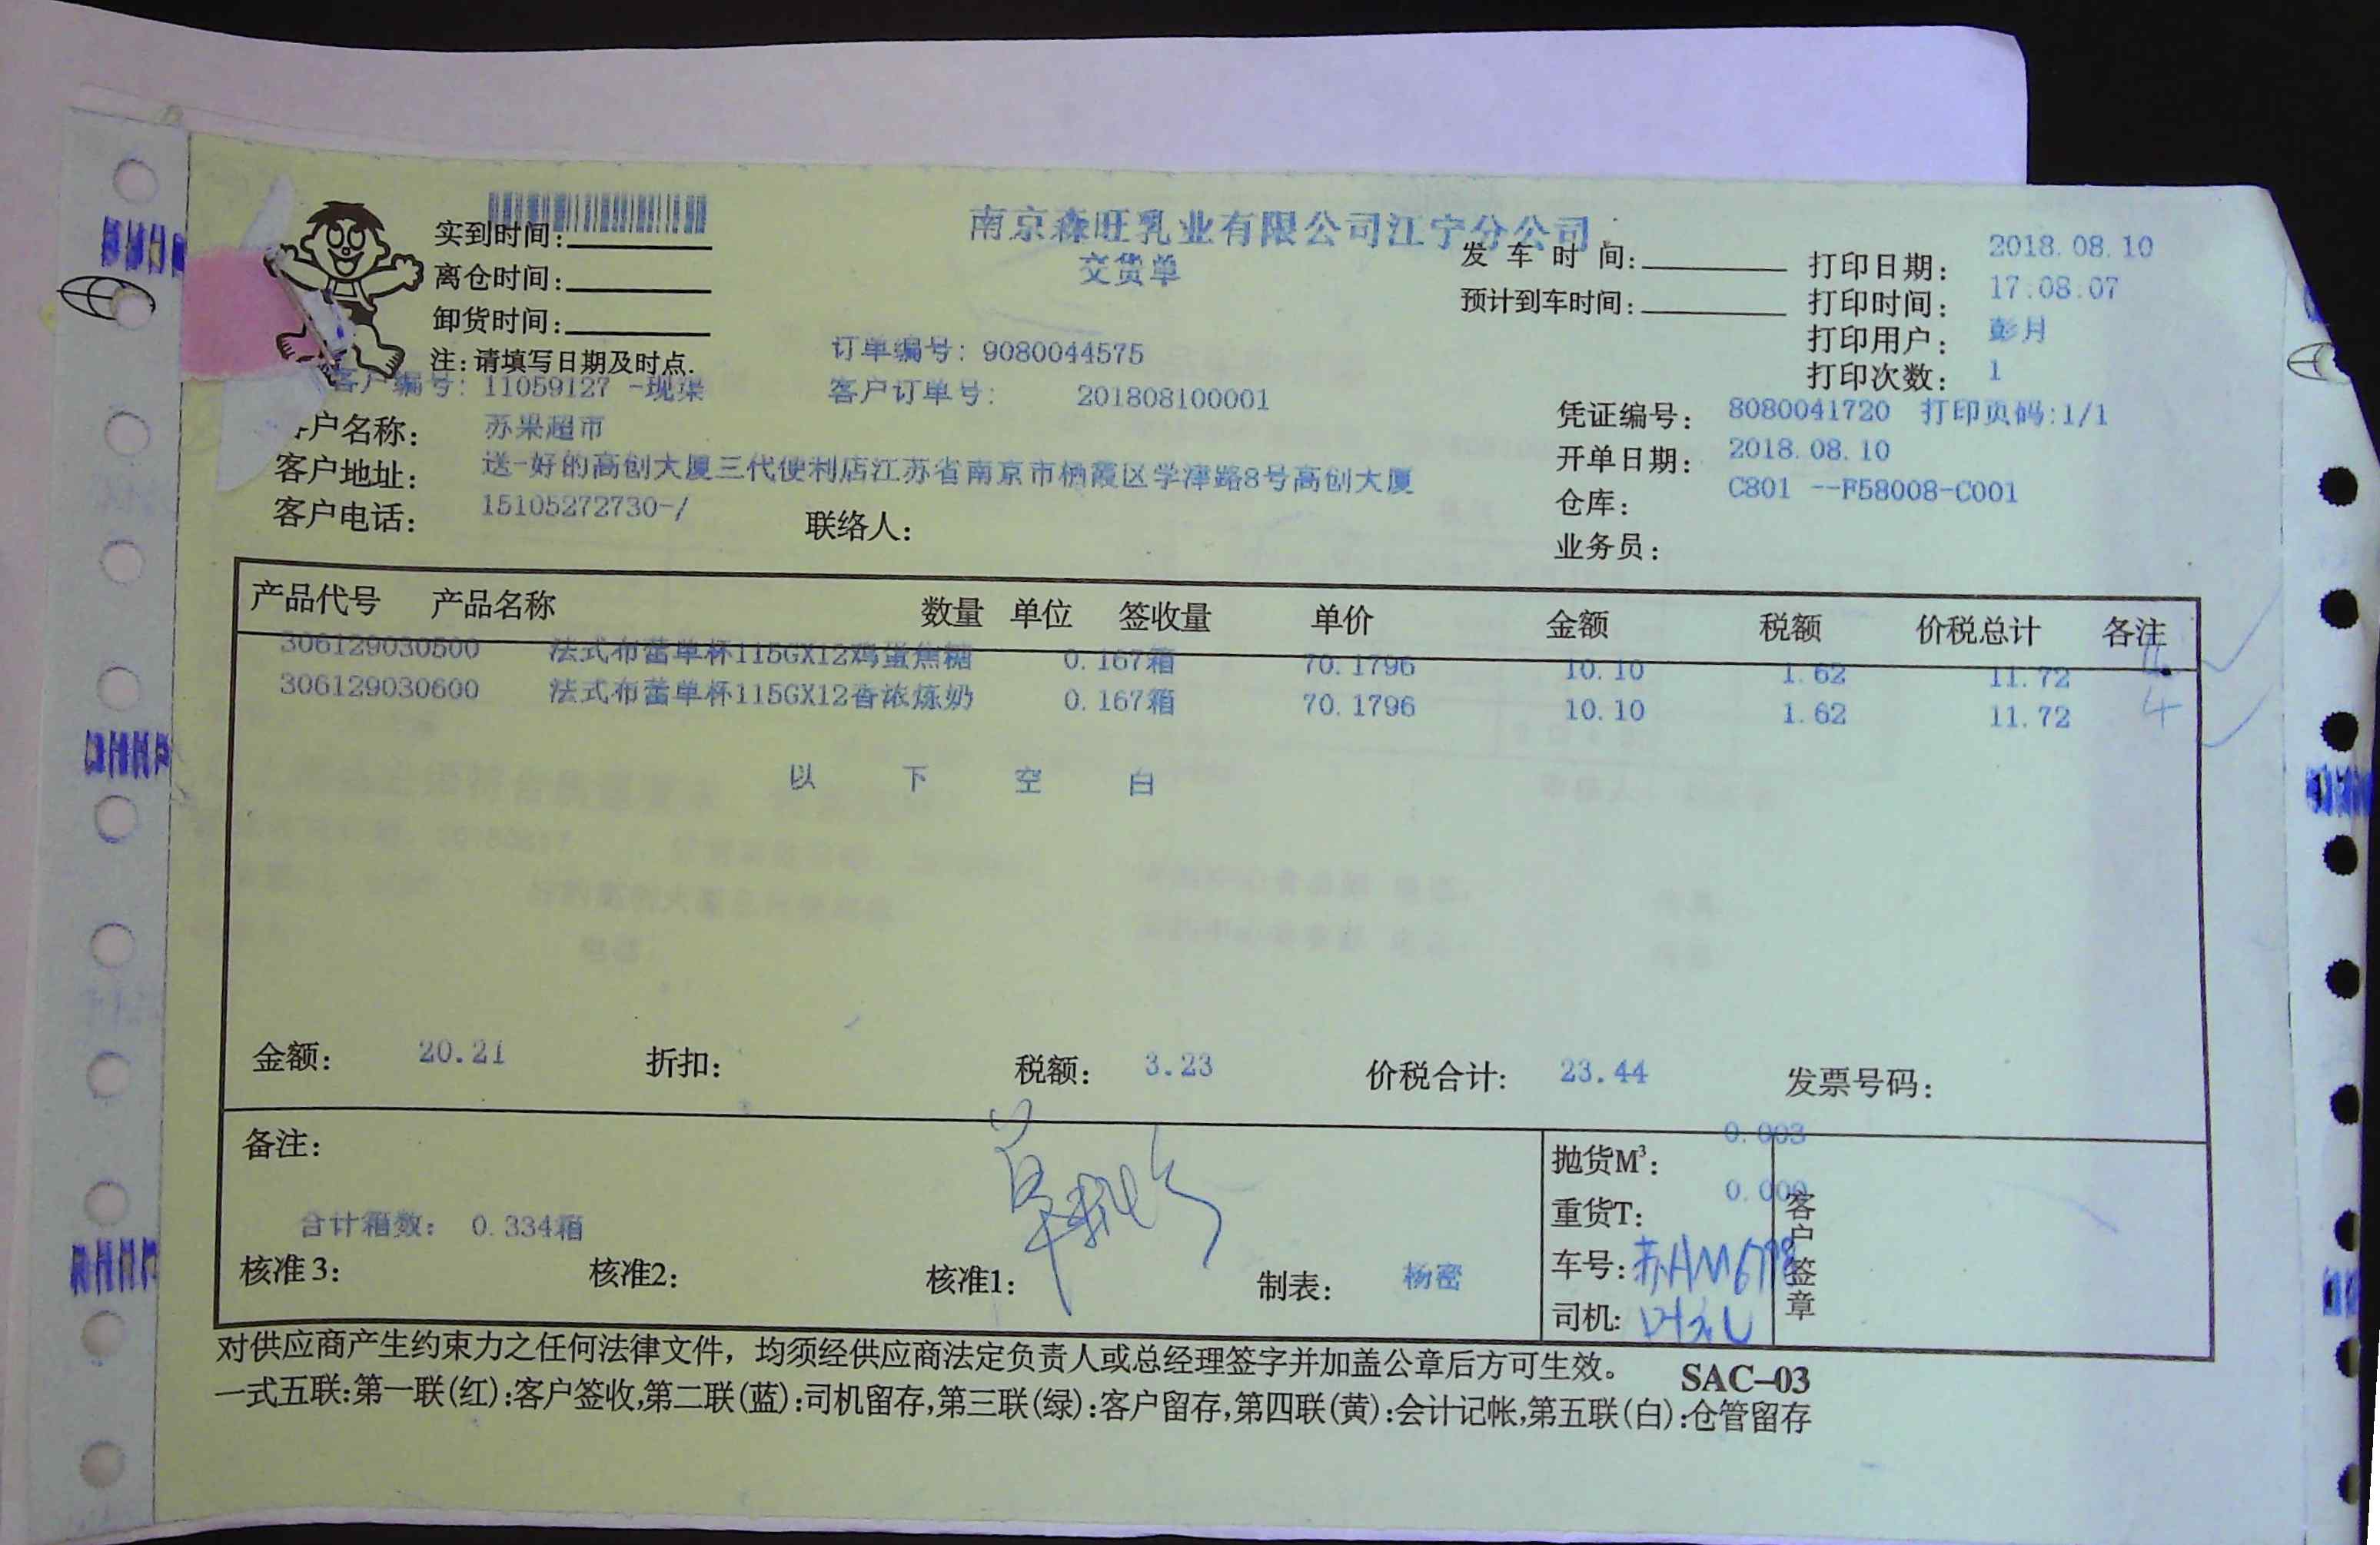 南京森旺乳业有限公司江宁分公司
交货单
实到时间:
离仓时间:
卸货时间:
注:请填写日期及时点.
发车时间:
预计到车时间:
打印日期: 2018.08.10
打印时间: 17.08.07
打印用户: 彭月
打印次数: 1
订单编号: 9080044575
客户编号: 11059127 -现渠 客户订单号: 201808100001
凭证编号: 8080041720 打印页码:1/1
户名称: 苏果超市
开单日期: 2018.08.10
客户地址: 送-好的高创大厦三代便利店江苏省南京市栖霞区学津路8号高创大厦
仓库: C801 --F58008-C001
客户电话: 15105272730-/ 联络人:
业务员:
产品代号 产品名称 数量 单位 签收量 单价 金额 税额 价税总计 各注
306129030500 法式布蕾单杯115GX12鸡蛋焦糖 0.167箱 70.1796 10.10 1.62 11.72 4
306129030600 法式布蕾单杯115GX12香浓炼奶 0.167箱 70.1796 10.10 1.62 11.72 4
以下空白
金额: 20.21 折扣: 税额: 3.23 价税合计: 23.44 发票号码:
备注:
合计箱数: 0.334箱
核准3: 核准2: 核准1: 制表: 杨密
抛货M³: 0.003
重货T: 0.000
车号:
司机:
客户签章
对供应商产生约束力之任何法律文件，均须经供应商法定负责人或总经理签字并加盖公章后方可生效。 SAC-03
一式五联:第一联(红):客户签收,第二联(蓝):司机留存,第三联(绿):客户留存,第四联(黄):会计记帐,第五联(白):仓管留存